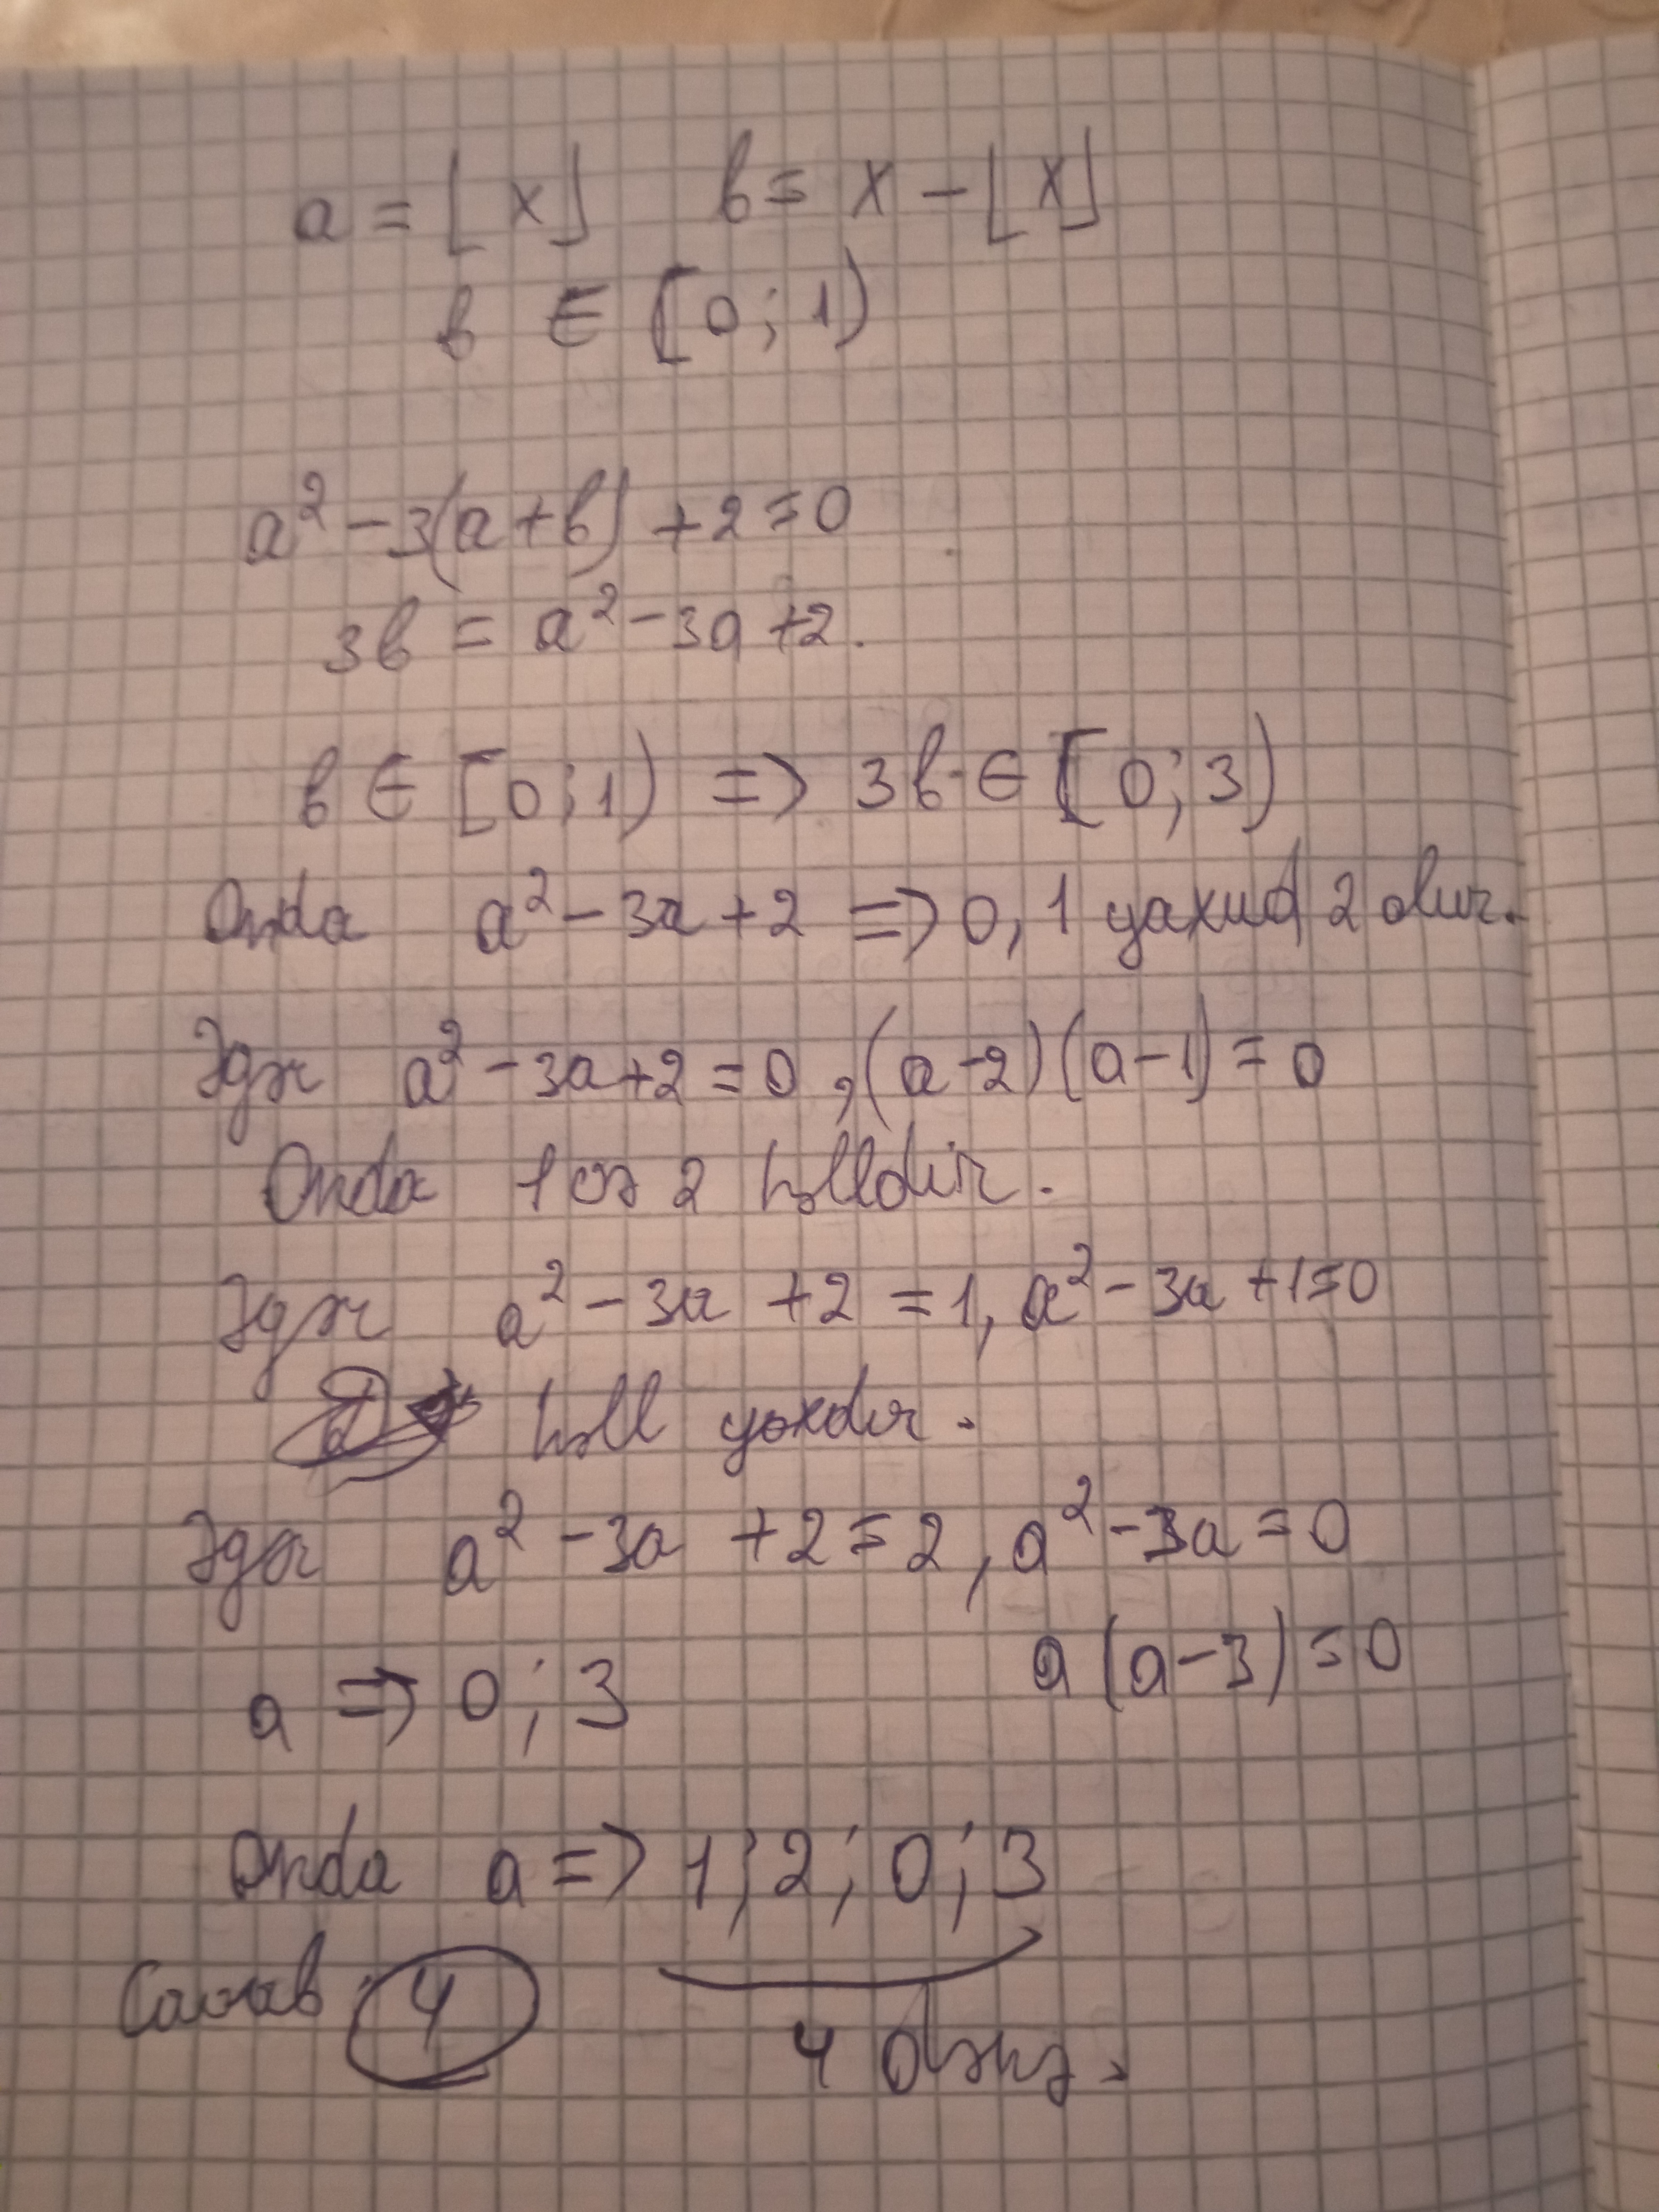 a = ⌊x⌋ b = x − ⌊x⌋
b ∈ [0; 1)
a² − 3(a+b) + 2 = 0
3b = a² − 3a + 2.
b ∈ [0; 1) => 3b ∈ [0; 3)
Onda a² − 3a + 2 => 0, 1 yaxud 2 olur.
Əgər a² − 3a + 2 = 0, (a − 2)(a − 1) = 0
Onda 1 və 2 həlldir.
Əgər a² − 3a + 2 = 1, a² − 3a + 1 = 0
həll yoxdur.
Əgər a² − 3a + 2 = 2, a² − 3a = 0
a(a − 3) = 0
a => 0; 3
Onda a => 1; 2; 0; 3
Cavab: 4
4 dənə.